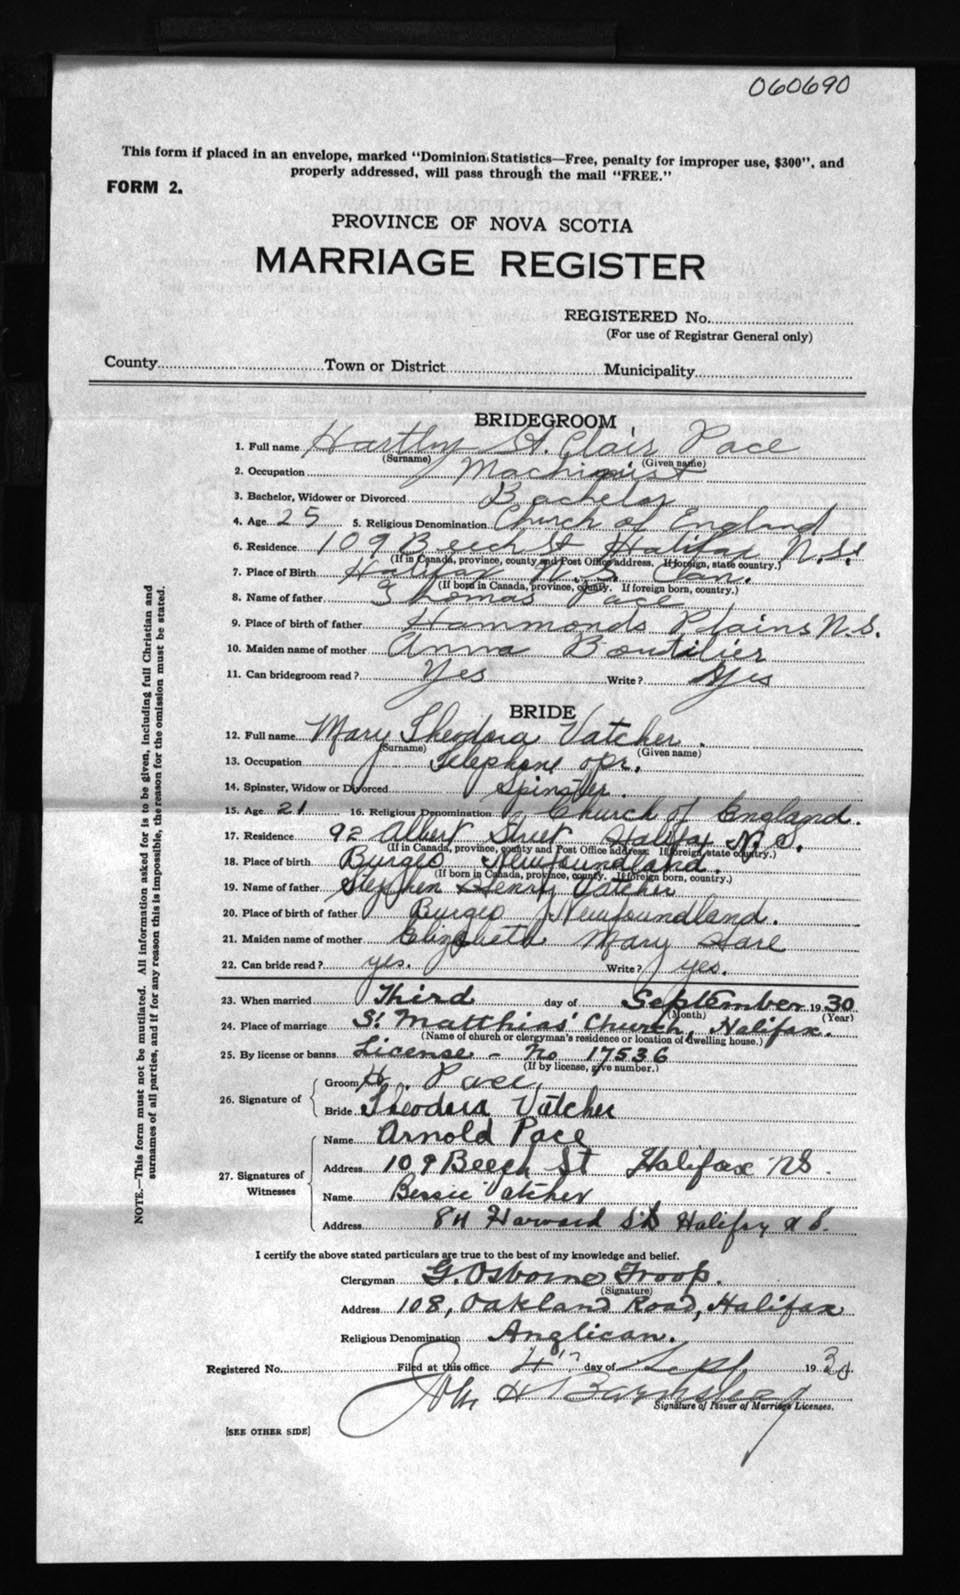 060690
This form if placed in an envelope, marked "Dominion Statistics—Free, penalty for improper use, $300", and
properly addressed, will pass through the mail "FREE."
FORM 2.
PROVINCE OF NOVA SCOTIA
MARRIAGE REGISTER
REGISTERED No.
(For use of Registrar General only)
County Town or District Municipality
BRIDEGROOM
1. Full name Hartley St. Clair Pace
(Surname) (Given name)
2. Occupation Machinist
3. Bachelor, Widower or Divorced Bachelor
4. Age 25 5. Religious Denomination Church of England
6. Residence 109 Beech St Halifax N.S.
(If in Canada, province, county and Post Office address. If foreign, state country.)
7. Place of Birth Halifax N.S. Can.
(If born in Canada, province, county. If foreign born, country.)
8. Name of father Thomas Pace
9. Place of birth of father Hammonds Plains N.S.
10. Maiden name of mother Anna Boutilier
11. Can bridegroom read? Yes Write? Yes
BRIDE
12. Full name Mary Theodora Vatcher.
(Surname) (Given name)
13. Occupation Telephone opr.
14. Spinster, Widow or Divorced Spinster.
15. Age 21 16. Religious Denomination Church of England.
17. Residence 92 Albert Street Halifax N.S.
(If in Canada, province, county and Post Office address. If foreign, state country.)
18. Place of birth Burgeo Newfoundland.
(If born in Canada, province, county. If foreign born, country.)
19. Name of father Stephen Henry Vatcher
20. Place of birth of father Burgeo Newfoundland.
21. Maiden name of mother Elizabeth Mary Hare
22. Can bride read? yes. Write? yes.
23. When married Third day of September 1930
(Month) (Year)
24. Place of marriage St Matthias' Church, Halifax.
(Name of church or clergyman's residence or location of dwelling house.)
25. By license or banns License - No 17536
(If by license, give number.)
26. Signature of Groom H. Pace
Bride Theodora Vatcher
27. Signatures of Witnesses Name Arnold Pace
Address 109 Beech St Halifax NS.
Name Bessie Vatcher
Address 84 Harvard St Halifax N S.
I certify the above stated particulars are true to the best of my knowledge and belief.
Clergyman G. Osborne Troop.
(Signature)
Address 108, Oakland Road, Halifax
Religious Denomination Anglican.
Registered No. Filed at this office 4th day of Sept 1930
John H
Signature of Issuer of Marriage Licenses.
[SEE OTHER SIDE]
NOTE.—This form must not be mutilated. All information asked for is to be given, including full Christian and
surnames of all parties, and if for any reason this is impossible, the reason for the omission must be stated.